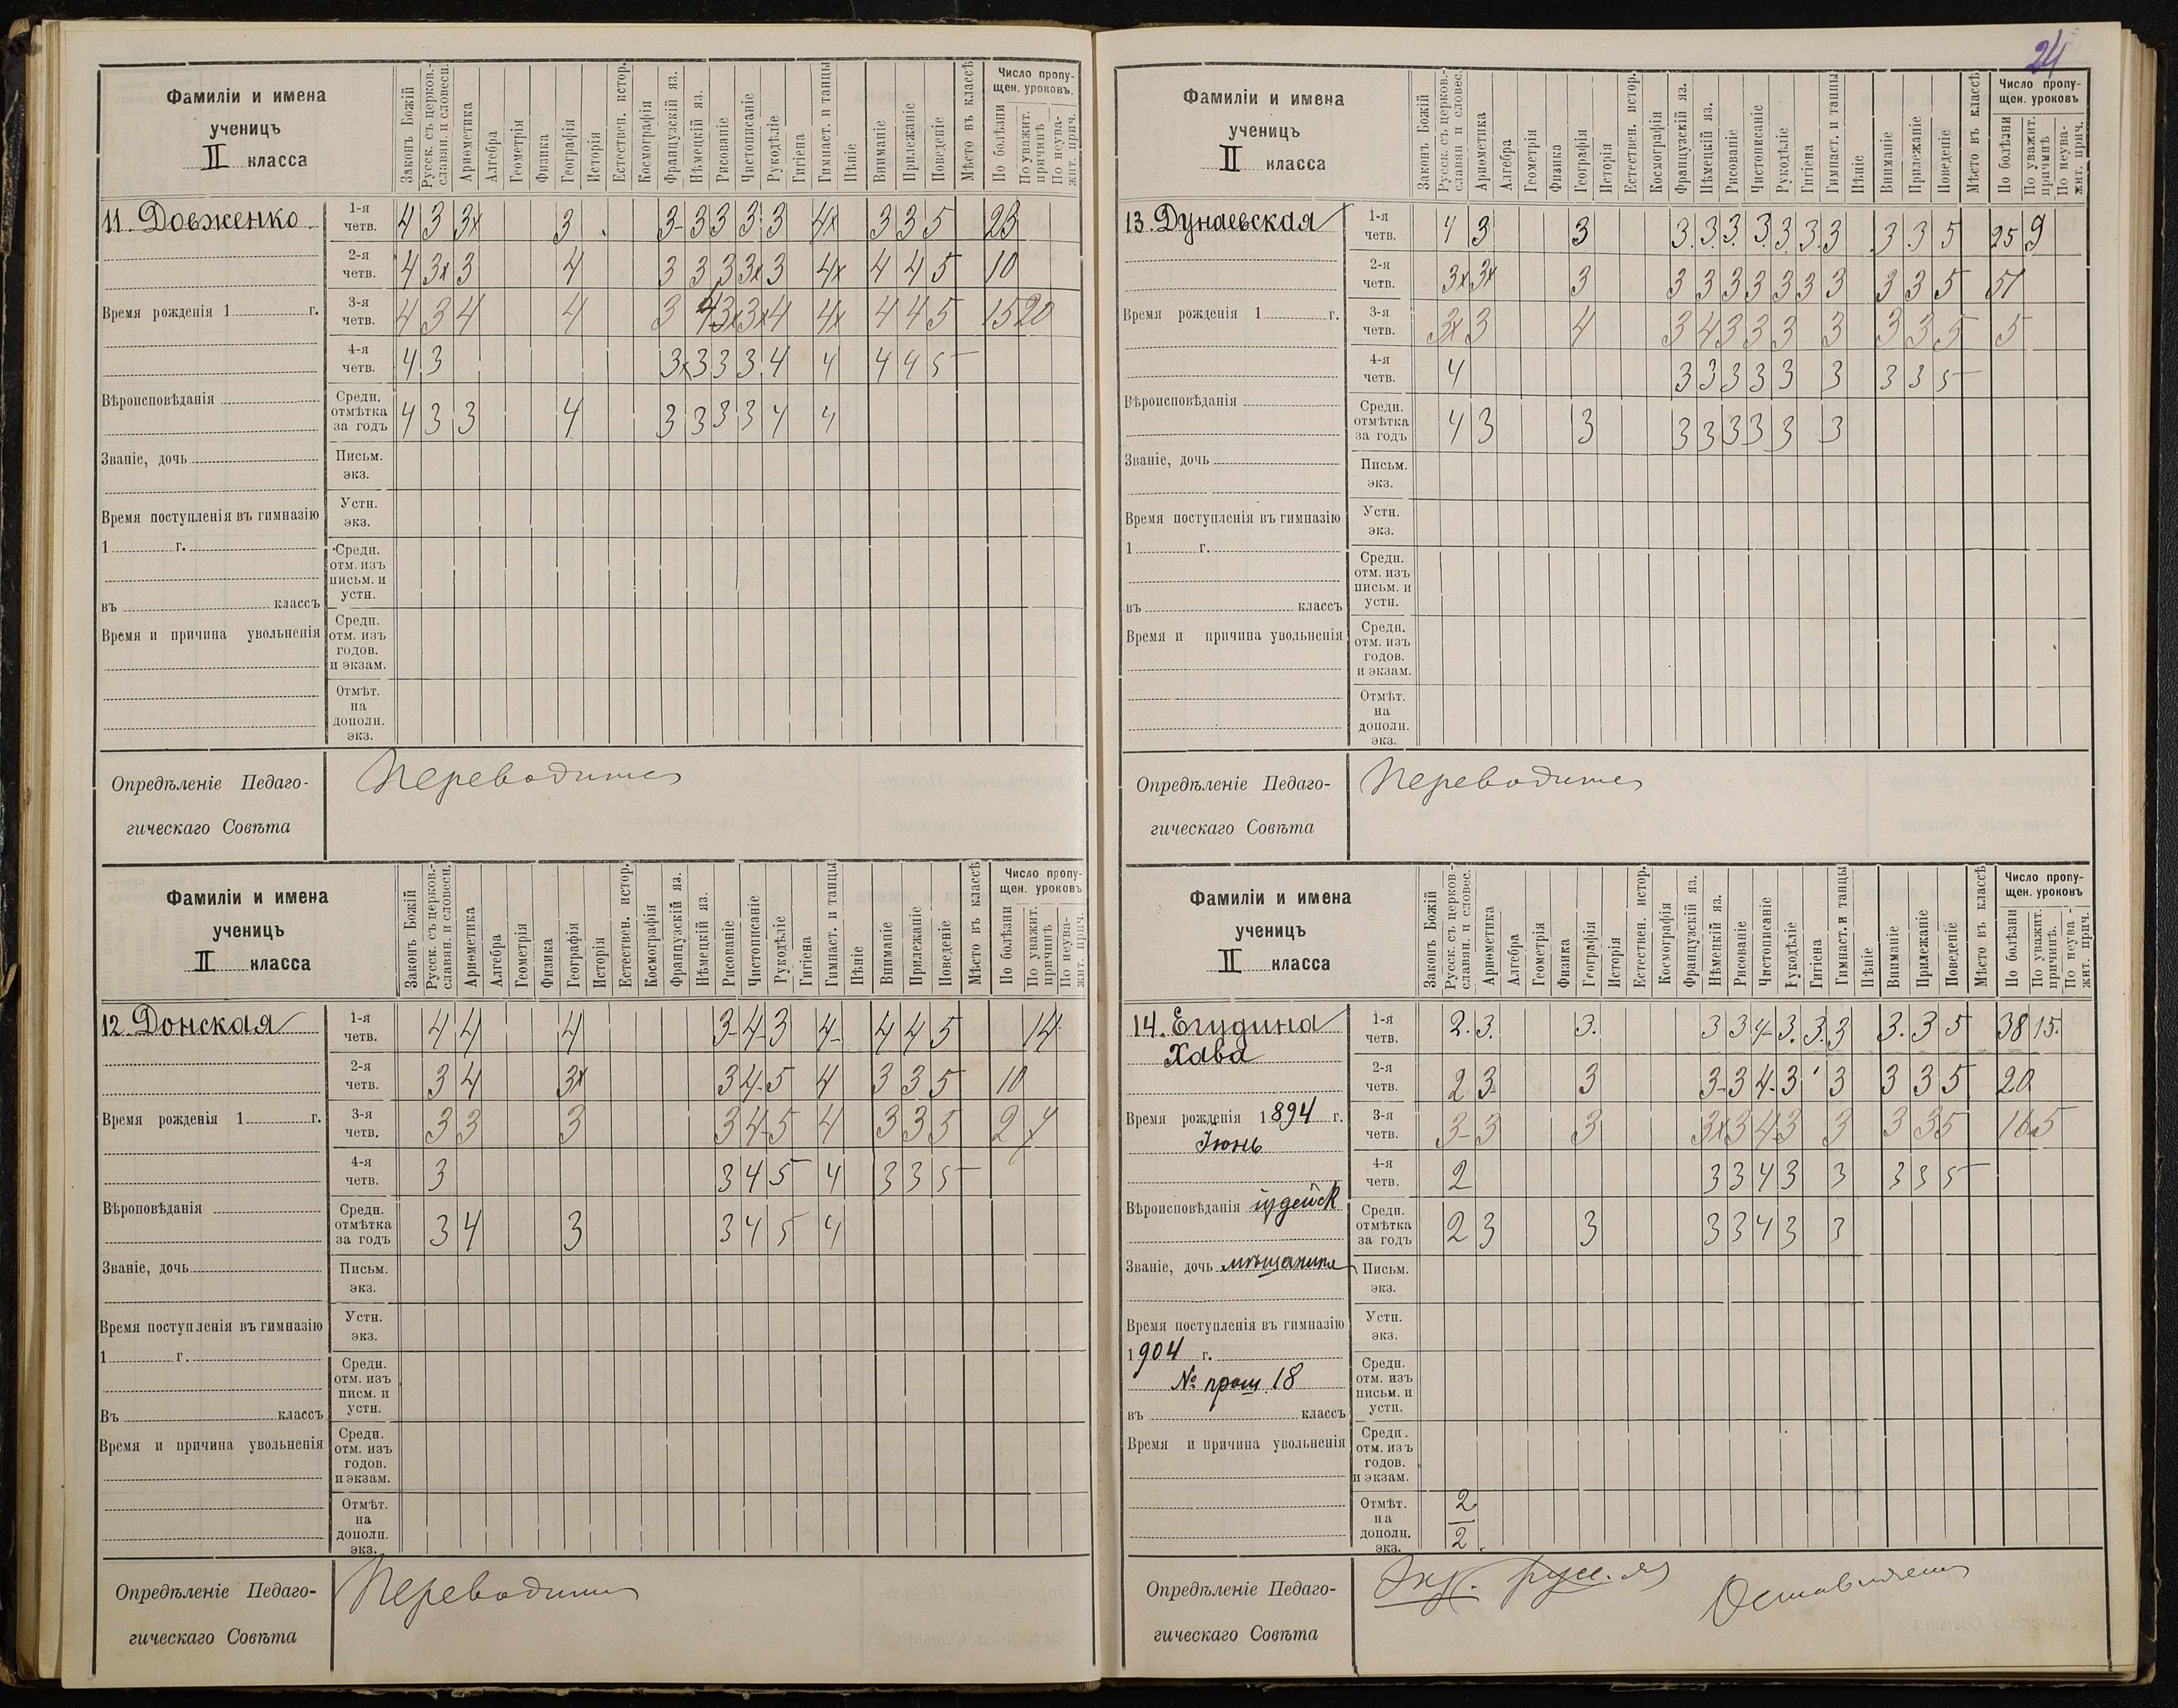 24
Фамиліи и имена
ученицъ
II класса
Законъ Божій
Русск. съ церков.-
славян. и словесн.
Ариѳметика
Алгебра
Геометрія
Физика
Географія
Исторія
Естествен. истор.
Космографія
Французскій яз.
Нѣмецкій яз.
Рисованіе
Чистописаніе
Рукодѣліе
Гигіена
Гимнаст. и танцы
Пѣніе
Вниманіе
Прилежаніе
Поведеніе
Мѣсто въ классѣ
Число пропу-
щен. уроковъ.
По болѣзни
По уважит.
причинѣ
По неува-
жит. прич.
11. Довженко
1-я четв. 4 3 3x 3 3- 3 3 3 3 4x 3 3 5 23
2-я четв. 4 3x 3 4 3 3 3 3x 3 4x 4 4 5 10
Время рожденія 1 г.
3-я четв. 4 3 4 4 3 4 3x 3x 4 4x 4 4 5 15 20
4-я четв. 4 3 3x 3 3 3 4 4 4 4 5
Вѣроисповѣданія
Средн. отмѣтка за годъ 4 3 3 4 3 3 3 3 4 4
Званіе, дочь
Письм. экз.
Время поступленія въ гимназію
Устн. экз.
1 г.
Средн. отм. изъ письм. и устн.
въ классъ
Время и причина увольненія
Средн. отм. изъ годов. и экзам.
Отмѣт. на дополн. экз.
Опредѣленіе Педаго-
гическаго Совѣта
Переводится
Фамиліи и имена
ученицъ
II класса
Законъ Божій
Русск. съ церков.-
славян. и словесн.
Ариѳметика
Алгебра
Геометрія
Физика
Географія
Исторія
Естествен. истор.
Космографія
Французскій яз.
Нѣмецкій яз.
Рисованіе
Чистописаніе
Рукодѣліе
Гигіена
Гимнаст. и танцы
Пѣніе
Вниманіе
Прилежаніе
Поведеніе
Мѣсто въ классѣ
Число пропу-
щен. уроковъ
По болѣзни
По уважит.
причинѣ
По неува-
жит. прич.
12. Донская
1-я четв. 4 4 4 3- 4- 3 4- 4 4 5 14
2-я четв. 3 4 3x 3 4- 5 4 3 3 5 10
Время рожденія 1 г.
3-я четв. 3 3 3 3 4- 5 4 3 3 5 2
4-я четв. 3 3 4 5 4 3 3 5
Вѣроповѣданія
Средн. отмѣтка за годъ 3 4 3 3 4 5 4
Званіе, дочь
Письм. экз.
Время поступленія въ гимназію
Устн. экз.
1 г.
Средн. отм. изъ писм. и устн.
Въ классъ
Время и причина увольненія
Средн. отм. изъ годов. и экзам.
Отмѣт. на дополн. экз.
Опредѣленіе Педаго-
гическаго Совѣта
Переводится
Фамиліи и имена
ученицъ
II класса
Законъ Божій
Русск. съ церков.-
славян и словес.
Ариѳметика
Алгебра
Геометрія
Физика
Географія
Исторія
Естествен. истор.
Космографія
Французскій яз.
Нѣмецкій яз.
Рисованіе
Чистописаніе
Рукодѣліе
Гигіена
Гимнаст. и танцы
Пѣніе
Вниманіе
Прилежаніе
Поведеніе
Мѣсто въ классѣ
Число пропу-
щен. уроковъ
По болѣзни
По уважит.
причинѣ
По неува-
жит. прич.
13. Дунаевская
1-я четв. 4 3 3 3. 3. 3. 3. 3. 3. 3 3 3 5 25 9
2-я четв. 3x 3x 3 3 3 3 3 3 3 3 3 3 5 51
Время рожденія 1 г.
3-я четв. 3x 3 4 3 4 3 3 3 3 3 3 5 5
4-я четв. 4 3 3 3 3 3 3 3 3 5
Вѣроисповѣданія
Средн. отмѣтка за годъ 4 3 3 3 3 3 3 3 3
Званіе, дочь
Письм. экз.
Время поступленія въ гимназію
Устн. экз.
1 г.
Средн. отм. изъ письм. и устн.
въ классъ
Время и причина увольненія
Средн. отм. изъ годов. и экзам.
Отмѣт. на дополн. экз.
Опредѣленіе Педаго-
гическаго Совѣта
Переводится
Фамиліи и имена
ученицъ
II класса
Законъ Божій
Русск. съ церков-
славян. и словес.
Ариѳметика
Алгебра
Геометрія
Физика
Географія
Исторія
Естествен. истор.
Космографія
Французскій яз.
Нѣмецкій яз.
Рисованіе
Чистописаніе
Рукодѣліе
Гигіена
Гимнаст. и танцы
Пѣніе
Вниманіе
Прилежаніе
Поведеніе
Мѣсто въ классѣ
Число пропу-
щен. уроковъ
По болѣзни
По уважит.
причинъ.
По неува-
жит. прич.
14. Егудина
Хава
1-я четв. 2. 3. 3. 3 3 4- 3. 3. 3 3. 3 5 38 15.
2-я четв. 2 3 3 3- 3 4- 3 3 3 3 5 20
Время рожденія 1894 г.
Іюнь
3-я четв. 3- 3 3 3x 3 4 3 3 3 3 5 16 5
4-я четв. 2 3 3 4 3 3 3 3 5
Вѣроисповѣданія іудейск
Средн. отмѣтка за годъ 2 3 3 3 3 4 3 3
Званіе, дочь мѣщанина
Письм. экз.
Время поступленія въ гимназію
Устн. экз.
1904 г.
№ прош 18
Средн. отм. изъ письм. и устн.
въ классъ
Время и причина увольненія
Средн. отм. изъ годов. и экзам.
Отмѣт. на дополн. экз. 2 2
Опредѣленіе Педаго-
гическаго Совѣта
Экз. русс. яз
Оставляется